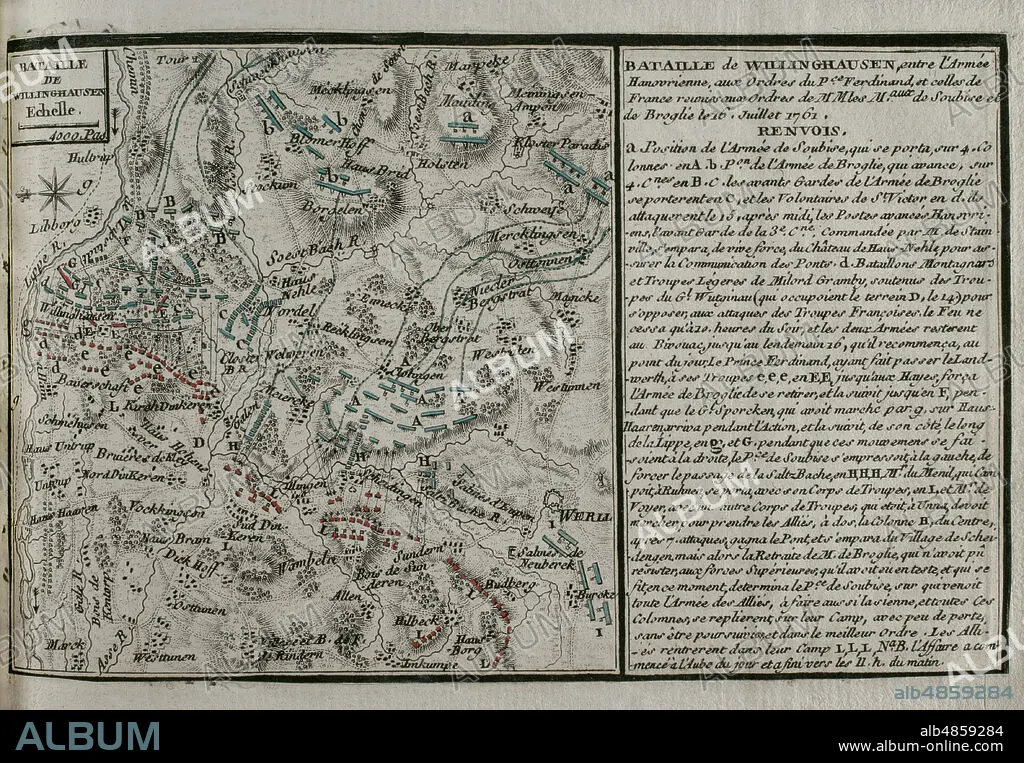 BATAILLE
DE
WILLINGHAUSEN
Echelle.
4000 Pas
BATAILLE de WILLINGHAUSEN, entre l'Armée
Hanovrienne, aux Ordres du P.ce Ferdinand, et celles de
France reunis aux Ordres de M M les M.aux de Soubise et
de Broglie le 16. Juillet 1761.
RENVOIS.
a. Position de l'Armée de Soubise, qui se porta, sur 4. Co
lonnes. en A. b. P.on de l'Armée de Broglie, qui avance, sur
4. C.nes en B. C. les avants Gardes de l'Armée de Broglie
se porterent en C, et les Volontaires de S.t Victor en d. ils
attaquerent le 15, après midi, les Postes avancés Hanovri-
ens, l'avant Garde de la 3.e C.ne, Commandée par M. de Stain
ville, s'empara, de vive force, du Château de Haus-Nehle, pour as-
surer la Communication des Ponts. d. Bataillons Montagnars
et Troupes Legeres de Milord Gramby, soutenus des Trou-
pes du G.l Wutginau (qui occupoient le terrein D, le 14) pour
s'opposer aux attaques des Troupes Françoises. le Feu ne
cessa qu'à 10. heures du Soir, et les deux Armées resterent
au Bivouac, jusqu'au lendemain 16, qu'il recommença, au
point du jour. Le Prince Ferdinand, ayant fait passer le Land-
werth, à ses Troupes e,e,e, en E E, jusqu'aux Hayes, força
l'Armée de Broglie de se retirer, et la suivit jusqu'en F, pen-
dant que le G.l Sporcken, qui avoit marché par g, sur Haus-
Haaren arriva pendant l'Action, et la suivit, de son côté, le long
de la Lippe, en g, et G. pendant que ces mouvemens se fai-
soient à la droite, le P.ce de Soubise s'empressoit à la gauche, de
forcer le passage de la Saltz-Bache, en H H H, M.r du Menil, qui Cam-
poit, à Ruhnen, se porta, avec son Corps de Troupes, en I, et M.r de
Voyer, avec un autre Corps de Troupes, qui etoit, à Unna, devoit
marcher, pour prendre les Alliés, à dos, la Colonne B, du Centre,
après 7. attaques, gagna le Pont, et s'empara du Village de Schei-
dengen, mais alors la Retraite de M. de Broglie, qui n'avoit pû
résister, aux forces Supérieures, qu'il avoit eu en teste, et qui se
fit en ce moment, determina le P.ce de Soubise, sur qui venoit
toute l'Armée des Alliés, à faire aussi la sienne, et toutes Ces
Colonnes, se replierent, sur leur Camp, avec peu de perte,
sans être poursuivis, et dans le meilleur Ordre. Les Alli-
és rentrerent dans leur Camp L L L, N.a B. l'Affaire a com-
mencé à l'Aube du jour et a fini vers les 11. h. du matin.
Tour
Mecklpssen
Marpeke
Meiningsen
Ampen
Mouding
Blomer Hoff
Kloster Paradis
Hultrup
Haus Brud
Holsten
Bordelen
Schweife
Libborg
Mercklingsen
Soest Bach R
Osttonnen
Lippe R.
Haus
Nehle
Nieder
Bergstrat
Mancke
Nordel
Willinghausen
Ober
Bergstrat
Closter Welveren
Westuten
Clothagen
Baverschaft
Westunnen
Kirch Dinker
Schmehusen
Haus Untrup
Untrup
Nord Dinkeren
Illingen
Scheidingen
Haus Haaren
Vockinghsen
Sud Din-
keren
WERLL
Haus Bram
Salines de
Neuberck
Dick Hoff
Wambeln
Sundern
Bois de Sun
deren
Budberg
Burcke
Allen
Osttunen
Hilbeck
Marck
Asse R
Westtunen
Haus
Borg
Inkumpe
ALBUM
alb4859284
ALBUM
alb4859284
www.album-online.com